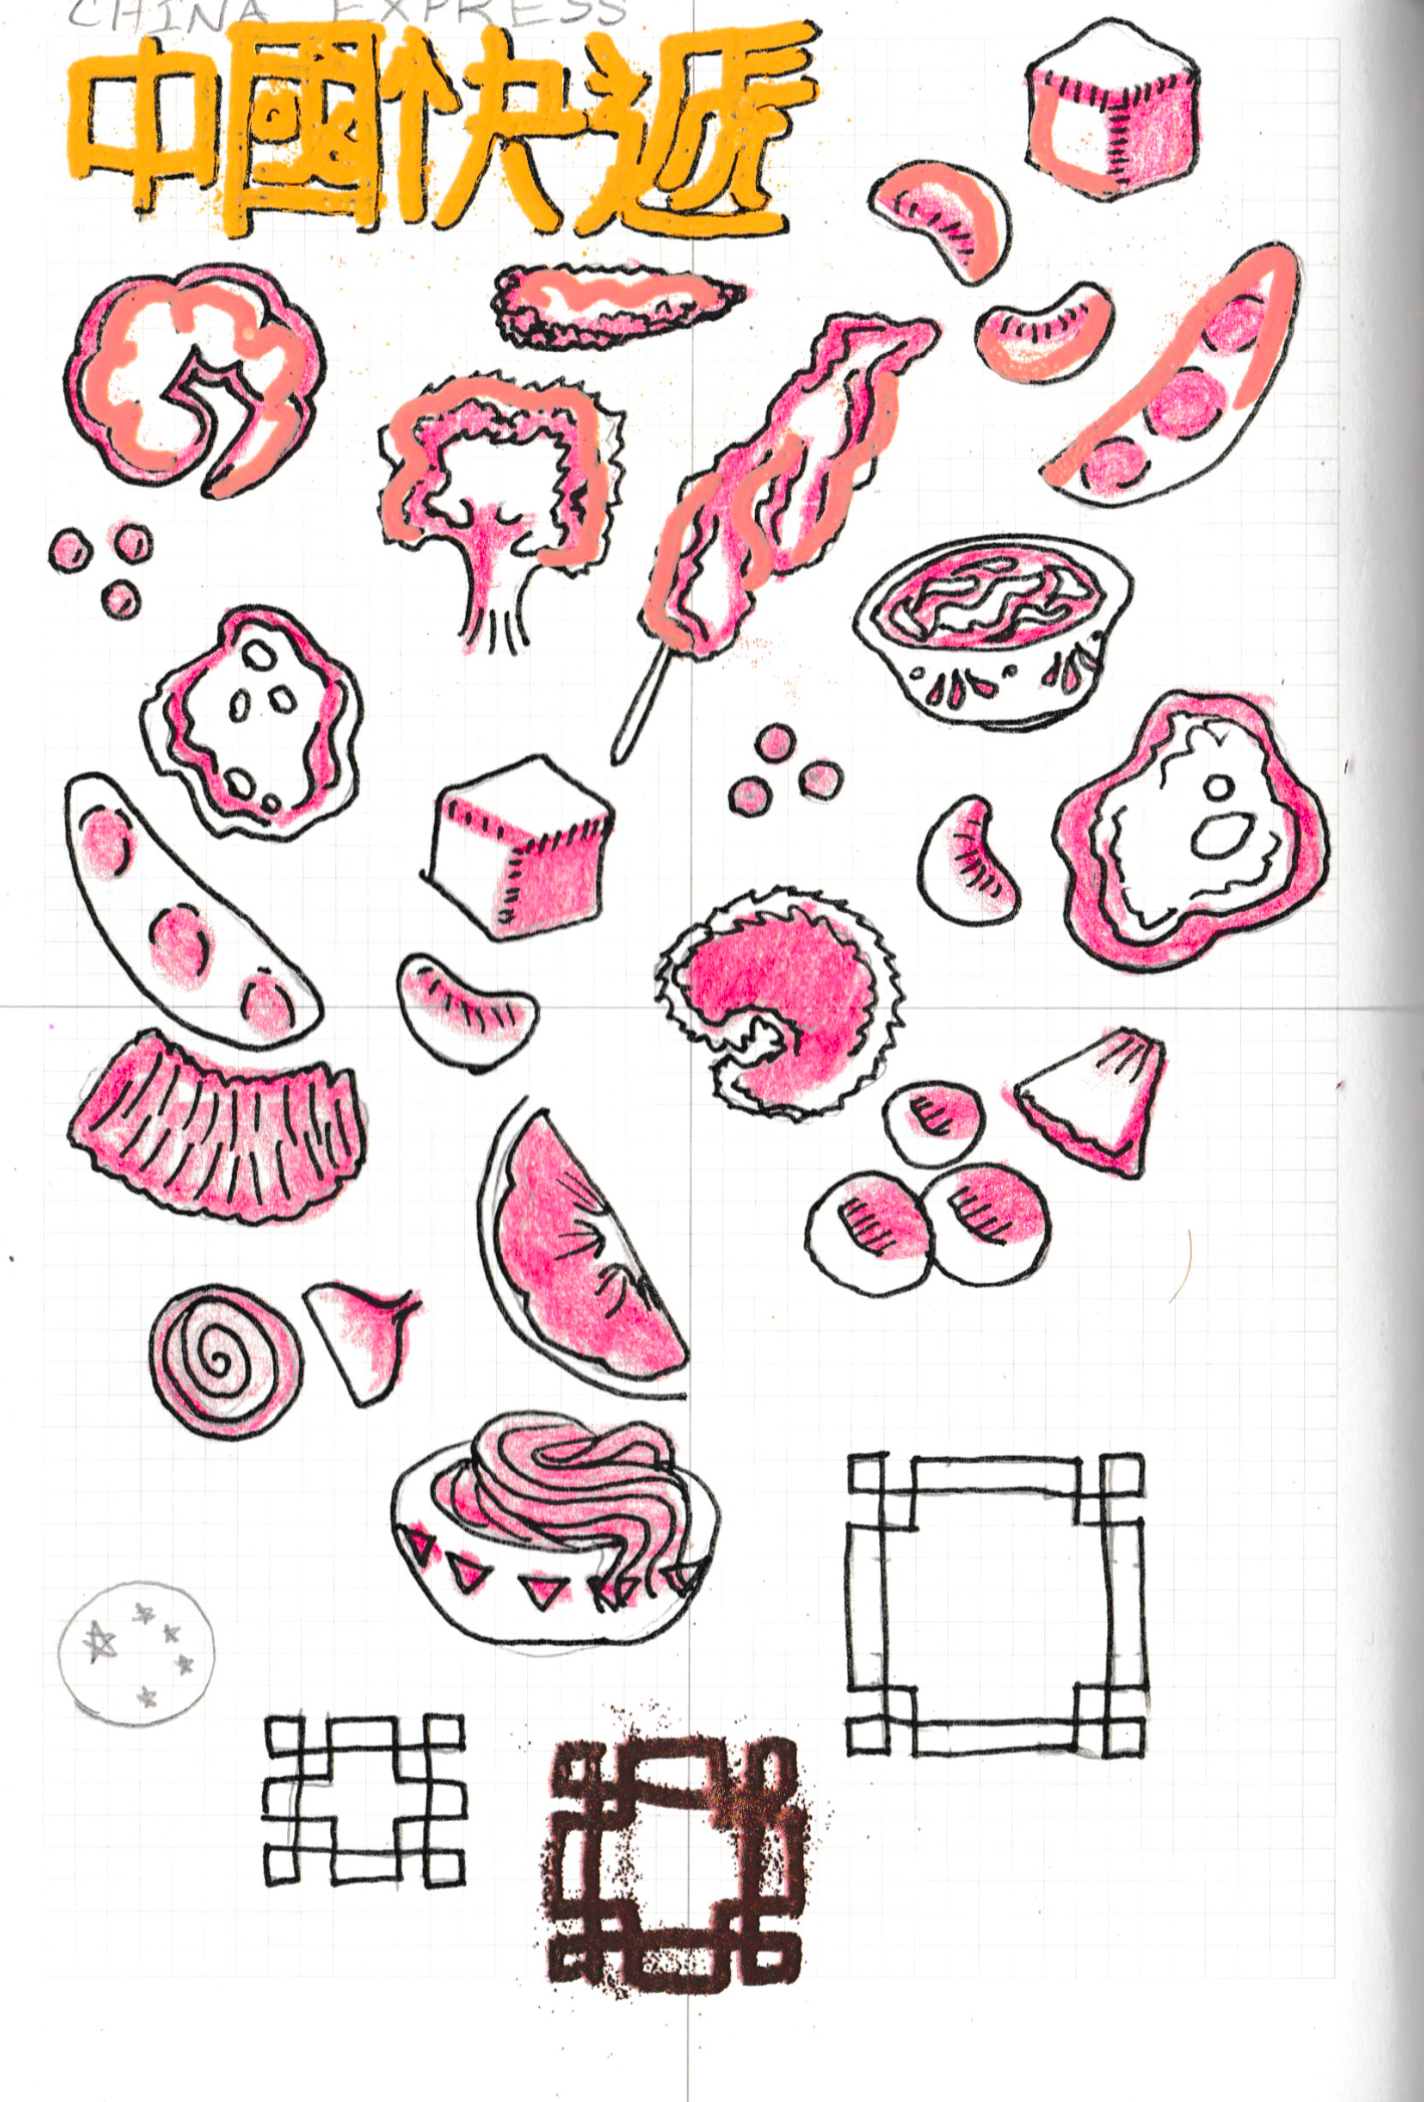 CHINA EXPRESS
中國快遞